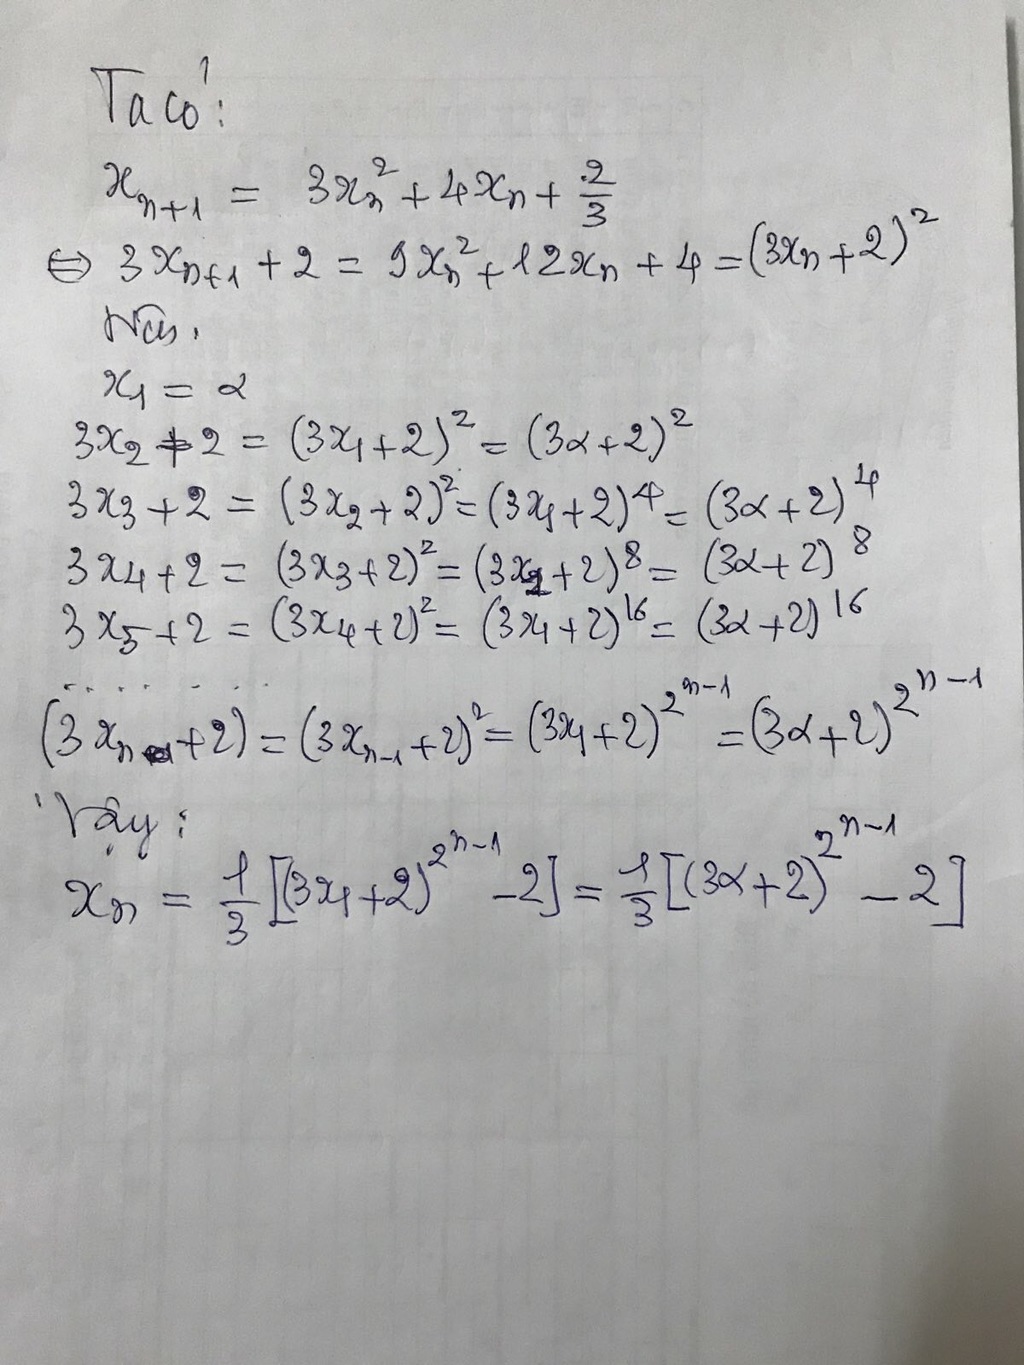 Ta có:
x_{n+1} = 3x_n^2 + 4x_n + 2/3
⇔ 3x_{n+1} + 2 = 9x_n^2 + 12x_n + 4 = (3x_n + 2)^2
x_1 = α
3x_2 + 2 = (3x_1 + 2)^2 = (3α + 2)^2
3x_3 + 2 = (3x_2 + 2)^2 = (3x_1 + 2)^4 = (3α + 2)^4
3x_4 + 2 = (3x_3 + 2)^2 = (3x_1 + 2)^8 = (3α + 2)^8
3x_5 + 2 = (3x_4 + 2)^2 = (3x_1 + 2)^{16} = (3α + 2)^{16}
. . . . . . .
(3x_n + 2) = (3x_{n-1} + 2)^2 = (3x_1 + 2)^{2^{n-1}} = (3α + 2)^{2^{n-1}}
Vậy:
x_n = 1/3 [(3x_1 + 2)^{2^{n-1}} - 2] = 1/3 [(3α + 2)^{2^{n-1}} - 2]